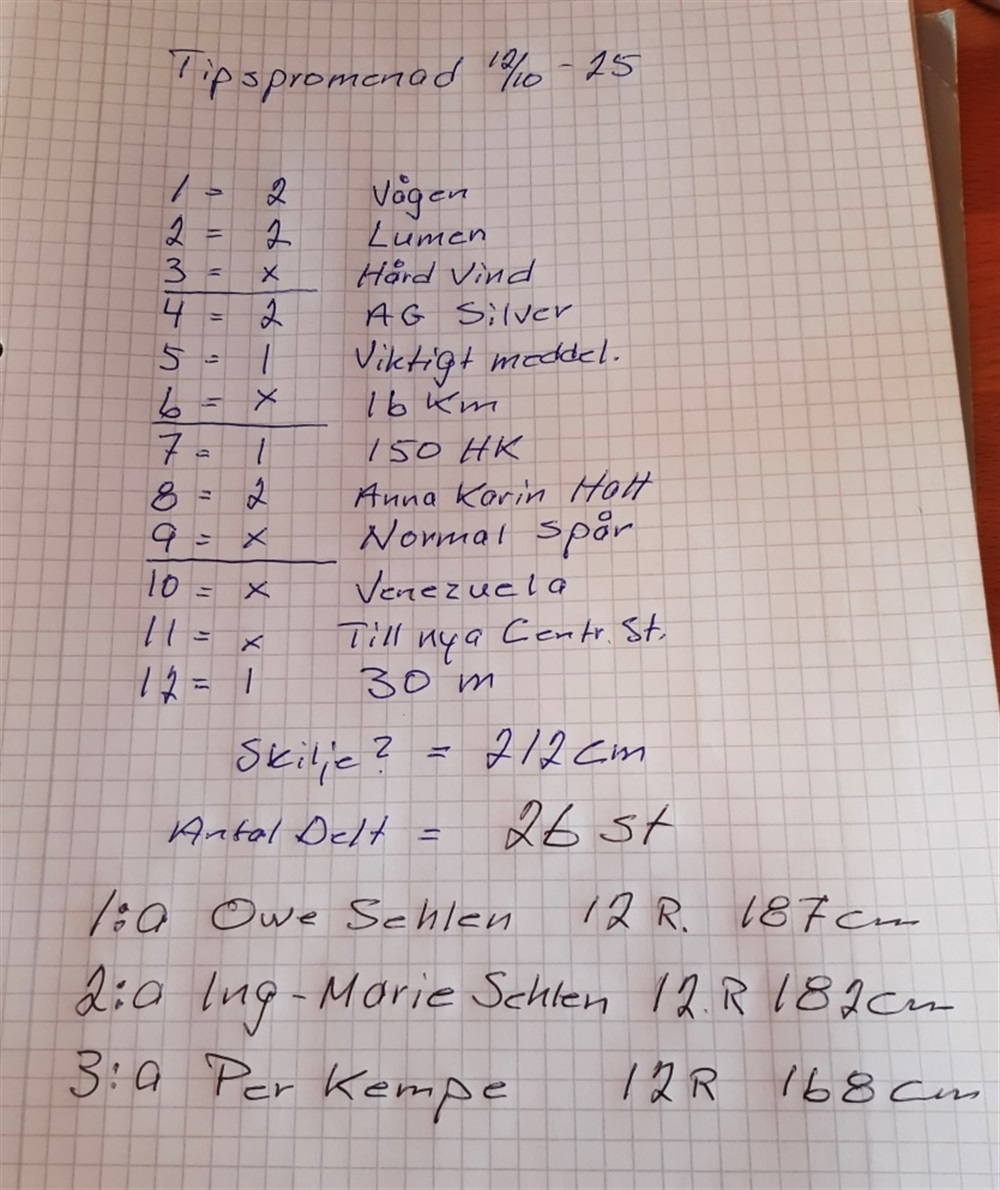 Tipspromenad 12/10 - 25
1 = 2 Vågen
2 = 2 Lumen
3 = x Hård Vind
4 = 2 AG Silver
5 = 1 Viktigt meddel.
6 = x 16 Km
7 = 1 150 HK
8 = 2 Anna Karin Hatt
9 = x Normal spår
10 = x Venezuela
11 = x Till nya Centr. St.
12 = 1 30 m
Skilje? = 212 cm
Antal Delt = 26 st
1:a Owe Sehlen 12 R. 187 cm
2:a Ing-Marie Sehlen 12.R 182 cm
3:a Per Kempe 12 R 168 cm